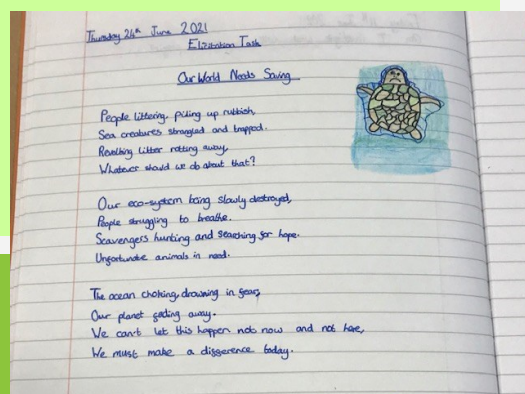 Thursday 24th June 2021
Elicitation Task
Our World Needs Saving
People littering, piling up rubbish,
Sea creatures strangled and trapped.
Revolting litter rotting away,
Whatever should we do about that?
Our eco-system being slowly destroyed,
People struggling to breathe.
Scavengers hunting and searching for hope.
Unfortunate animals in need.
The ocean choking, drowning in fear,
Our planet fading away.
We can't let this happen not now and not here,
We must make a difference today.